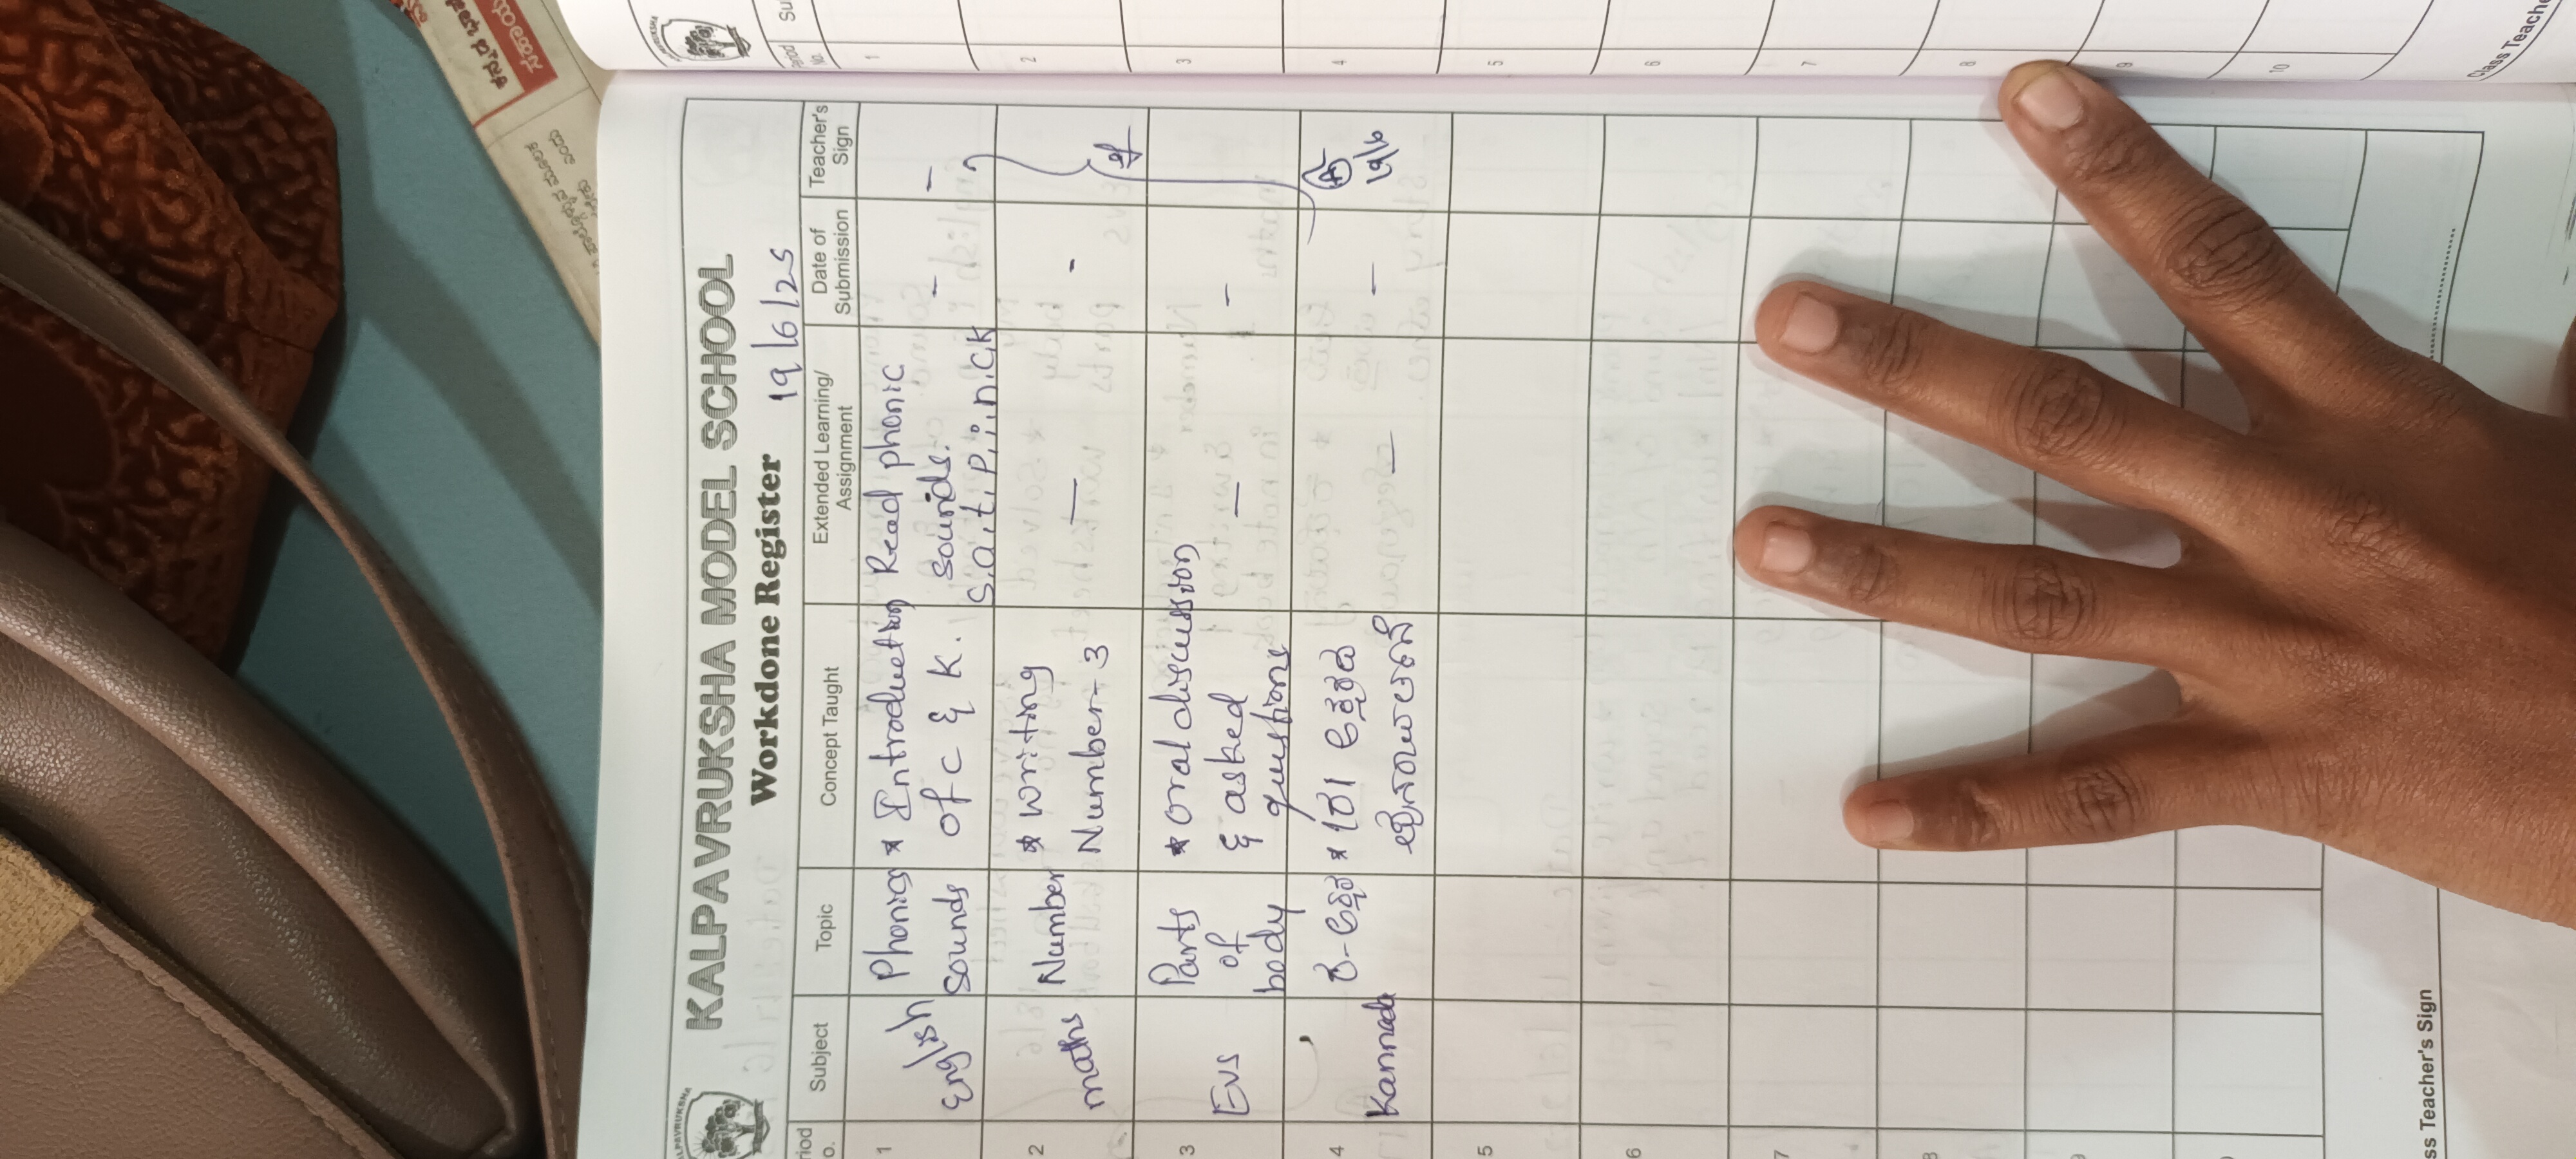 KALPAVRUKSHA MODEL SCHOOL
Workdone Register
19/6/25
Subject
Topic
Concept Taught
Extended Learning/
Assignment
Date of
Submission
Teacher's
Sign
1
English
Phonics
sounds
* Introducting
of c & k.
Read phonic
sounds.
s,a,t,p,i,n,c,k
-
-
2
maths
Number
* writing
Number-3
—
-
3
EVS
Parts
of
body
* oral discussion
& asked
questions
—
-
4
Kannada
—
—
5
6
7
8
ss Teacher's Sign
No.
1
2
3
4
5
6
7
8
9
10
Class Teache